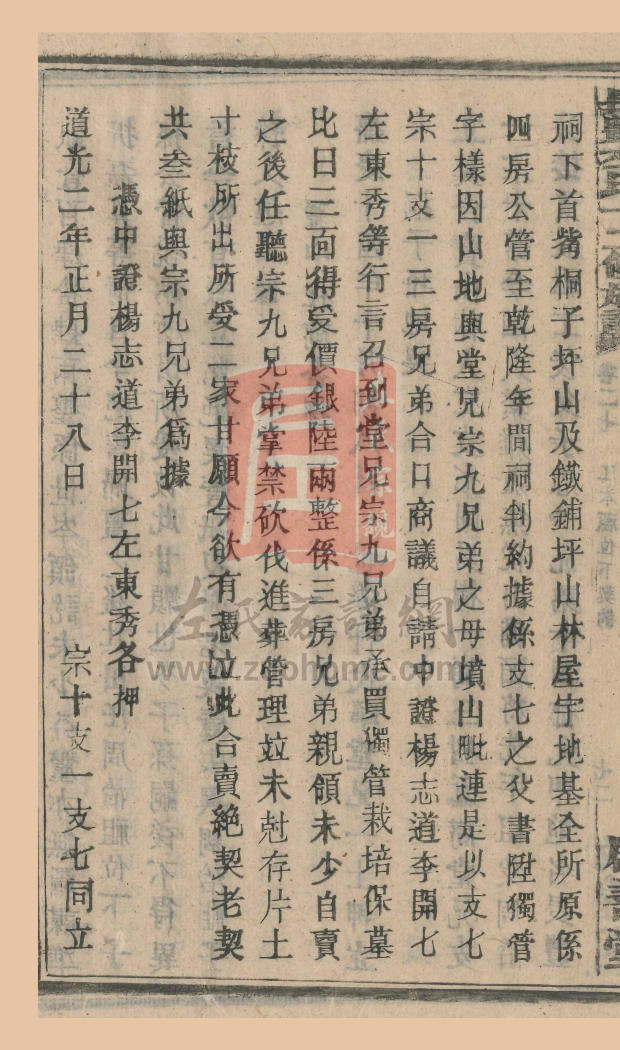 祠下首觜桐子坪山及鐵鋪坪山林屋宇地基全所原係
四房公管至乾隆年間祠判約據係支七之父書陞獨管
字樣因山地與堂兄宗九兄弟之母墳山毗連是以支七
宗十支一三房兄弟合口商議自請中證楊志道李開七
左東秀等行言召到堂兄宗九兄弟承買獨管栽培保墓
比日三面得受價銀陸兩整係三房兄弟親領未少自賣
之後任聽宗九兄弟掌禁砍伐進葬管理竝未尅存片土
寸枝所出所受二家甘願今欲有憑立此合賣絕契老契
共叁紙與宗九兄弟爲據
憑中證楊志道李開七左東秀各押
道光二年正月二十八日 宗十支一支七同立
左氏家譜網
www.zuohome.com